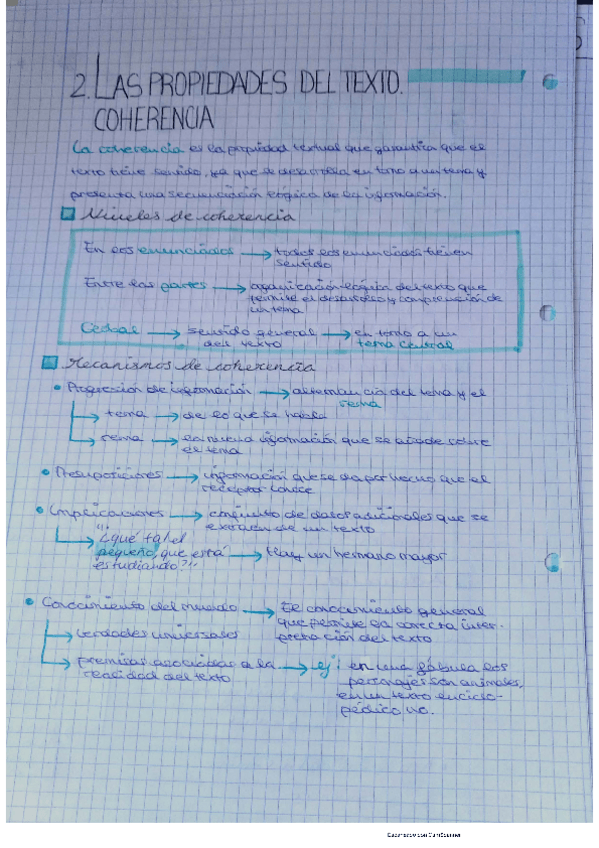 2. LAS PROPIEDADES DEL TEXTO.
COHERENCIA
La coherencia es la propiedad textual que garantiza que el
texto tiene sentido, ya que se desarrolla en torno a un tema y
presenta una secuenciación lógica de la información.
Niveles de coherencia
En los enunciados → todos los enunciados tienen
sentido
Entre las partes → organización lógica del texto que
permite el desarrollo y comprensión de
un tema
Global → sentido general → en torno a un
del texto tema central
Mecanismos de coherencia
• Progresión de información → alternancia del tema y el
rema
→ tema → de lo que se habla
→ rema → la nueva información que se añade sobre
el tema
• Presuposiciones → información que se da por hecho que el
receptor conoce
• Implicaciones → conjunto de datos adicionales que se
extraen de un texto
→ "¿qué tal el
pequeño, que está → Hay un hermano mayor
estudiando?"
• Conocimiento del mundo → El conocimiento general
que permite la correcta inter-
→ verdades universales pretación del texto
→ premisas asociadas a la → ej: en una fábula los
realidad del texto personajes son animales,
en un texto enciclo-
pédico no.
Escaneado con CamScanner